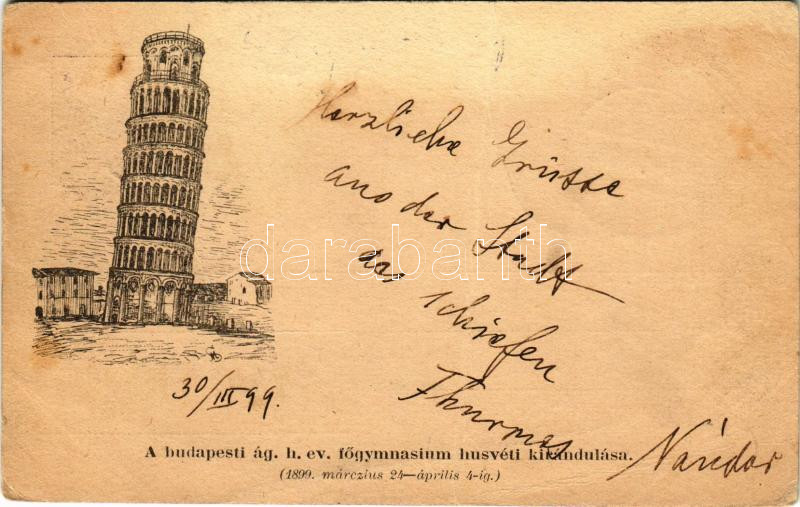 Herzliche Grüsse
aus der Stadt
des schiefen
Thurmes
Nándor
30/III 99.
A budapesti ág. h. ev. főgymnasium husvéti kirándulása.
(1899. márczius 24—április 4-ig.)
darabanth